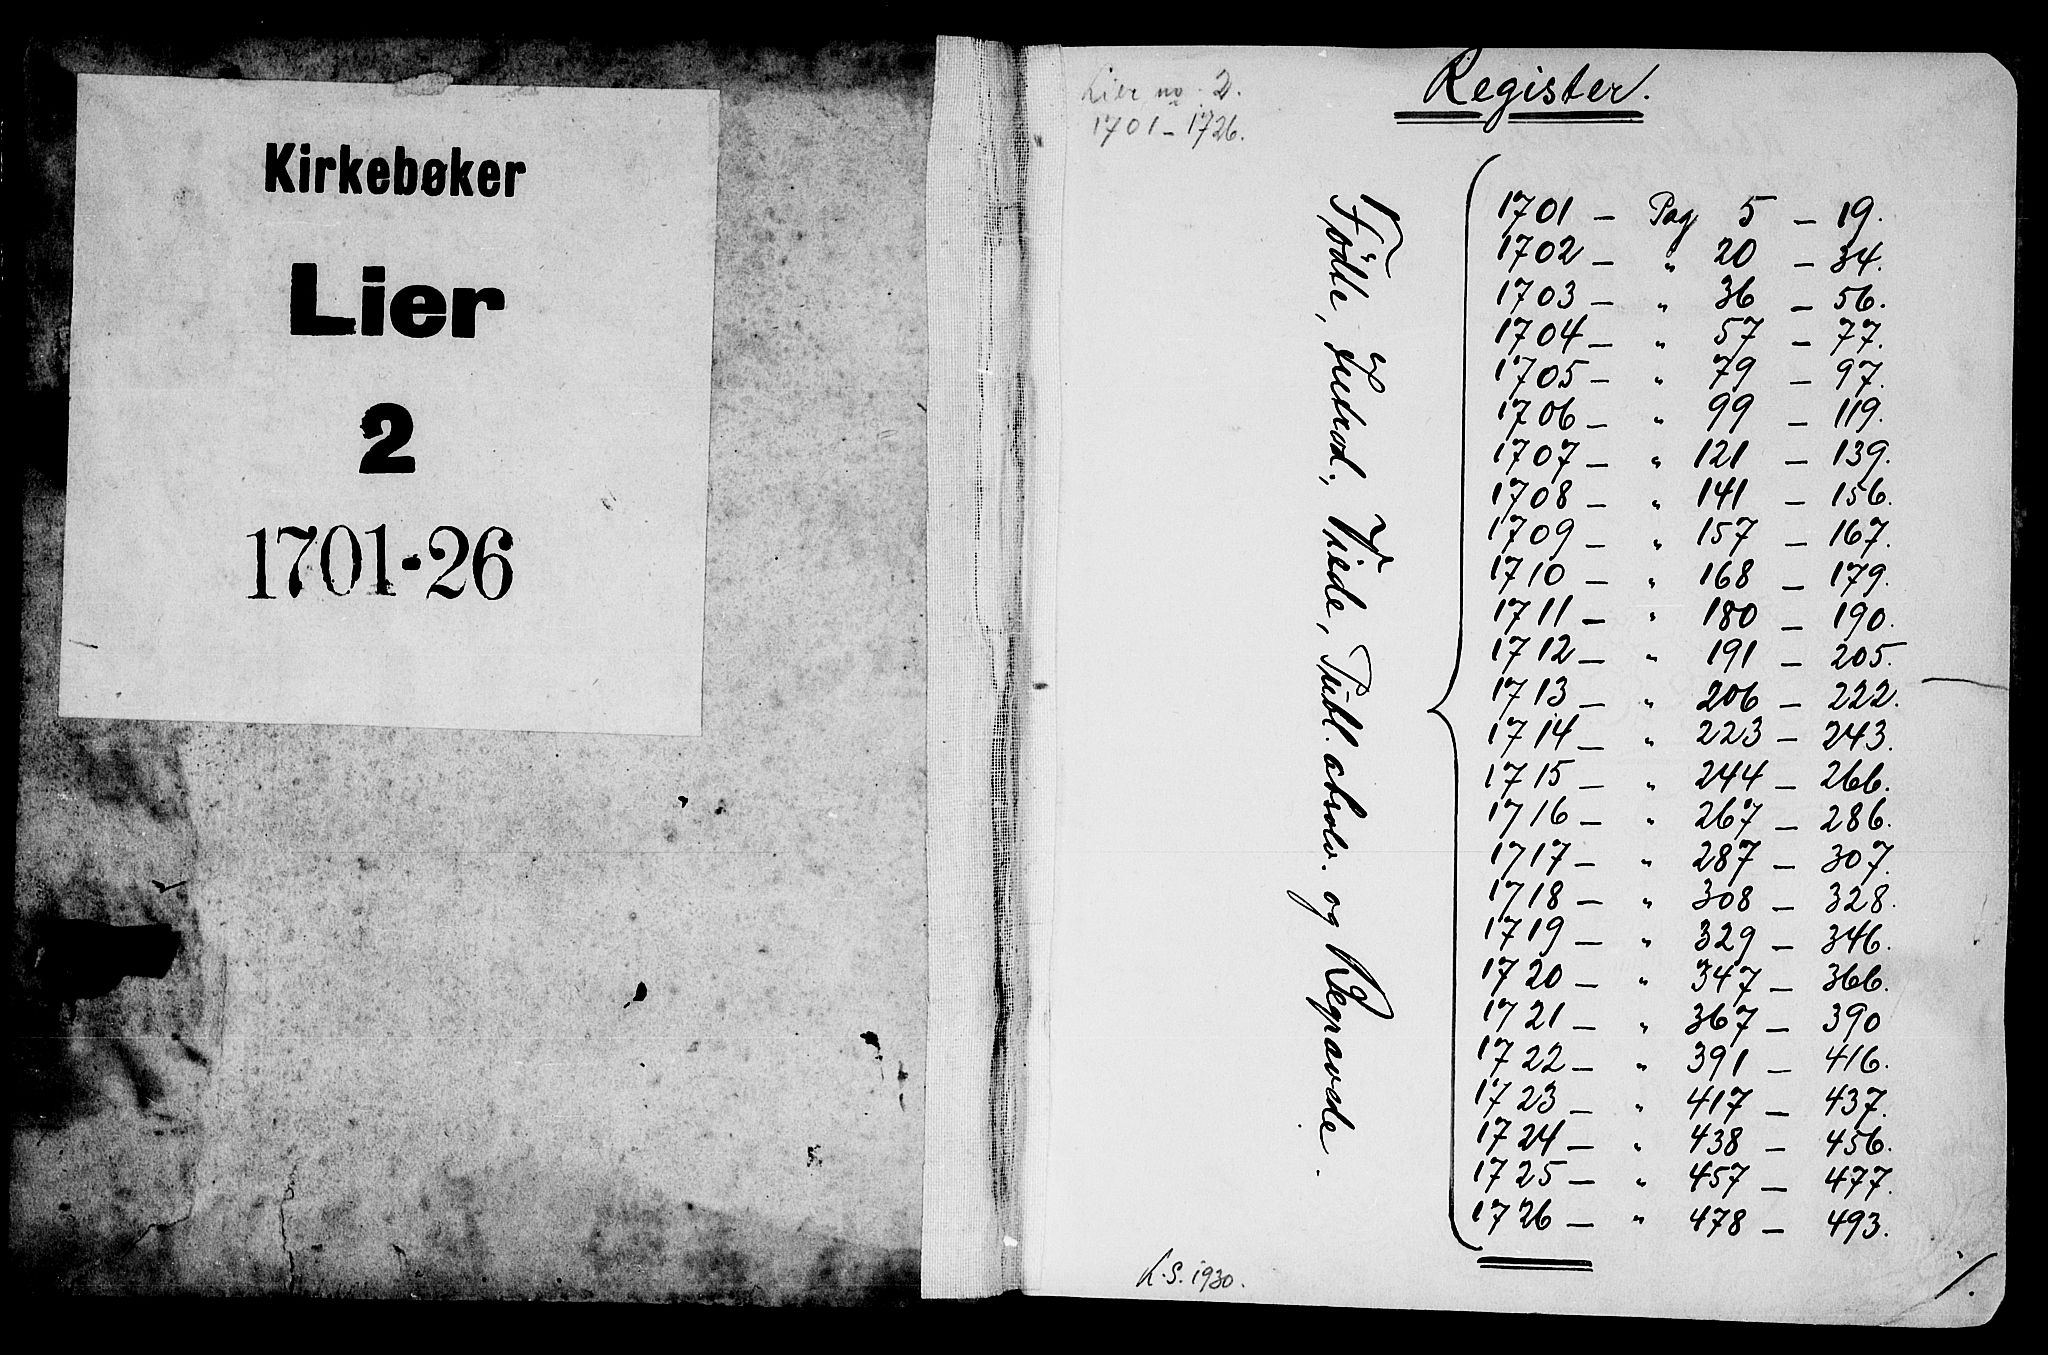 Kirkebøker
Lier
2
1701-26
Lier no. 2.
1701-1726.
Register.
Fødte, Introd., Viede, Publ. absolv. og Begravede.
1701 - Pag 5 - 19.
1702 - " 20 - 34.
1703 - " 36 - 56.
1704 - " 57 - 77.
1705 - " 79 - 97.
1706 - " 99 - 119.
1707 - " 121 - 139.
1708 - " 141 - 156.
1709 - " 157 - 167.
1710 - " 168 - 179.
1711 - " 180 - 190.
1712 - " 191 - 205.
1713 - " 206 - 222.
1714 - " 223 - 243.
1715 - " 244 - 266.
1716 - " 267 - 286.
1717 - " 287 - 307.
1718 - " 308 - 328.
1719 - " 329 - 346.
1720 - " 347 - 366.
1721 - " 367 - 390
1722 - " 391 - 416.
1723 - " 417 - 437.
1724 - " 438 - 456.
1725 - " 457 - 477.
1726 - " 478 - 493.
K.S. 1930.